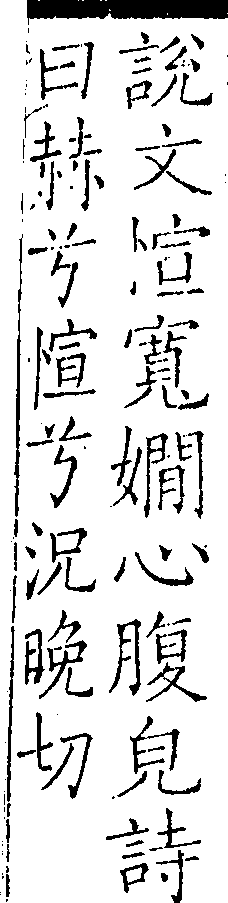 說文愃寬嫺心腹皃詩
曰赫兮愃兮况晚切